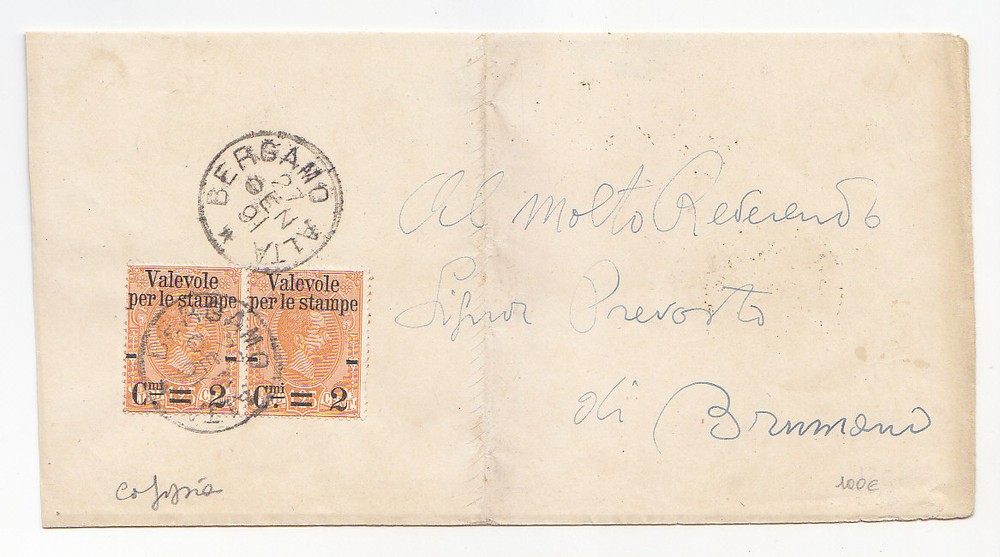 BERGAMO ALTA
27
GEN
91
Valevole
per le stampe
Cmi = 2
Valevole
per le stampe
Cmi = 2
BERGAMO
Al Molto Reverendo
Signor Prevosto
di Brumano
100€